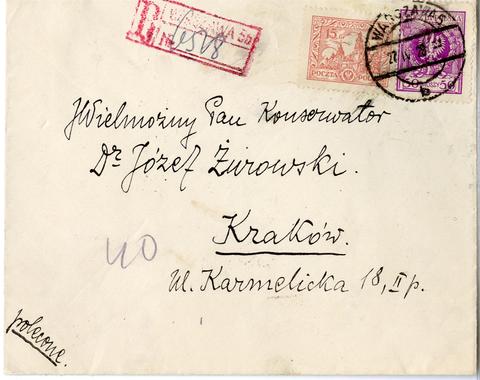 R WARSZAWA 5b
№ 4528
15
POCZTA
WARSZAWA 5
50
JWielmożny Pan Konserwator
Dr Józef Żurowski.
Kraków.
40
ul. Karmelicka 18, II p.
polecone.